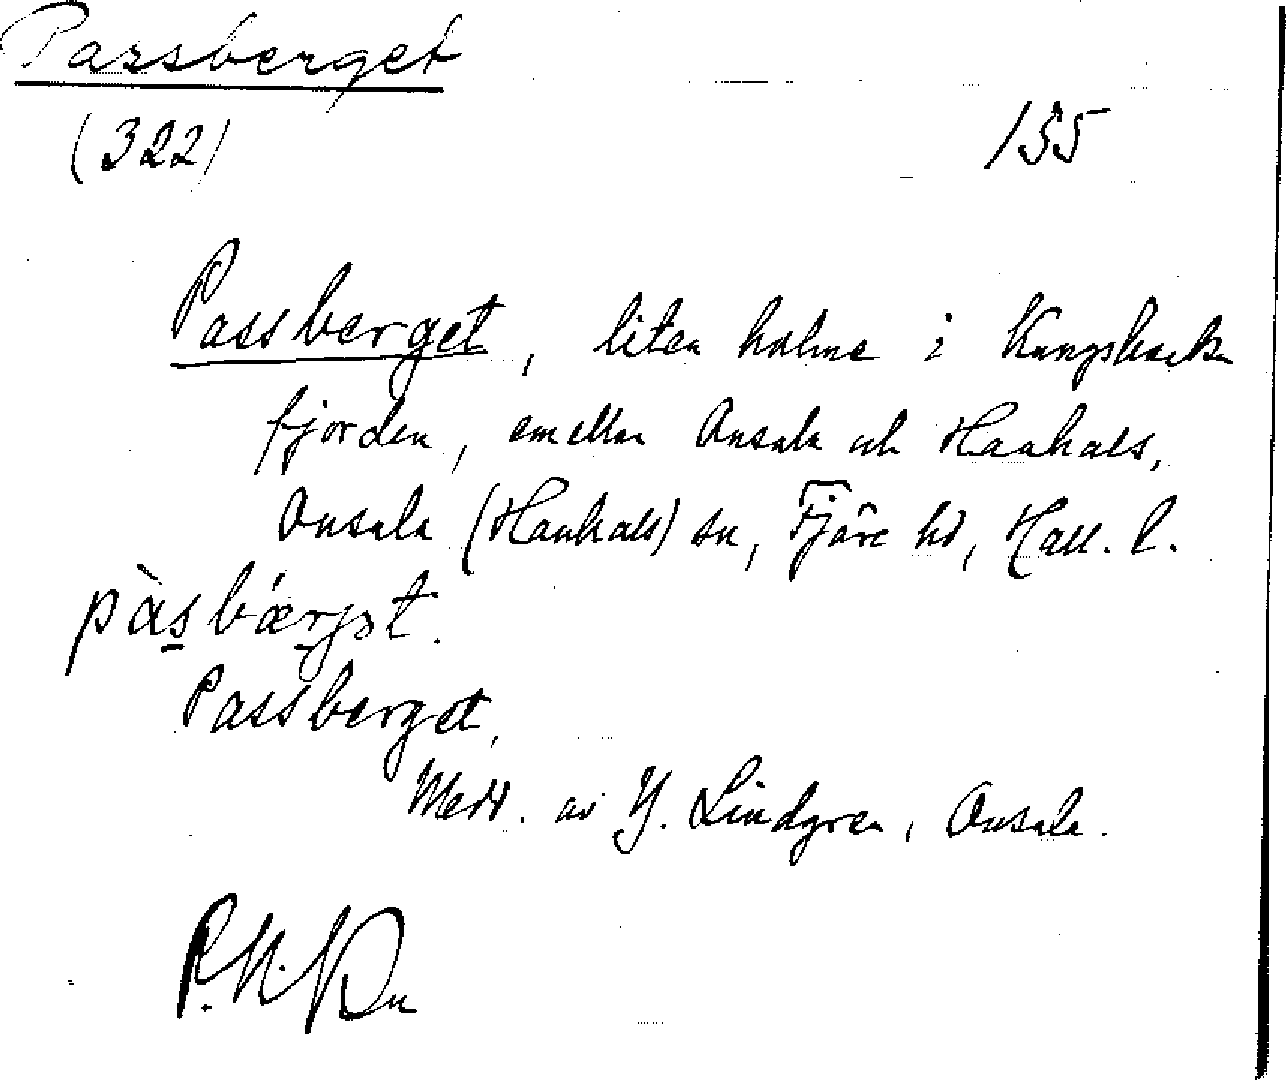 Passberget
(322)
155
Passberget, liten holme i Kungsbacka
fjorden, emellan Onsala och Hanhals,
Onsala (Hanhals) sn, Fjäre hd, Hall. l.
pàsbærjət.
Passberget.
Medd. av Y. Lindgren, Onsala.